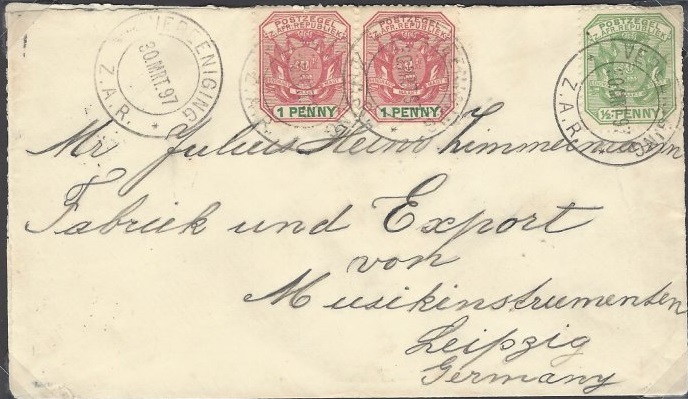 VEREENIGING
20.MRT.97
Z.A.R.
POSTZEGEL
Z. AFR. REPUBLIEK
1 PENNY
POSTZEGEL
Z. AFR. REPUBLIEK
1 PENNY
POSTZEGEL
Z. AFR. REPUBLIEK
½ PENNY
Z.A.R.
Mr Julius Heinr Zimmermann
Fabriek und Export
von
Musikinstrumenten
Leipzig
Germany